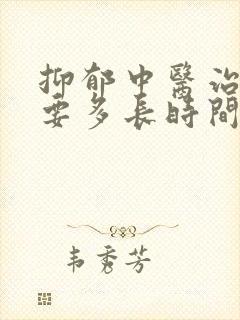 抑郁中醫治
要多長時間
韦秀芳